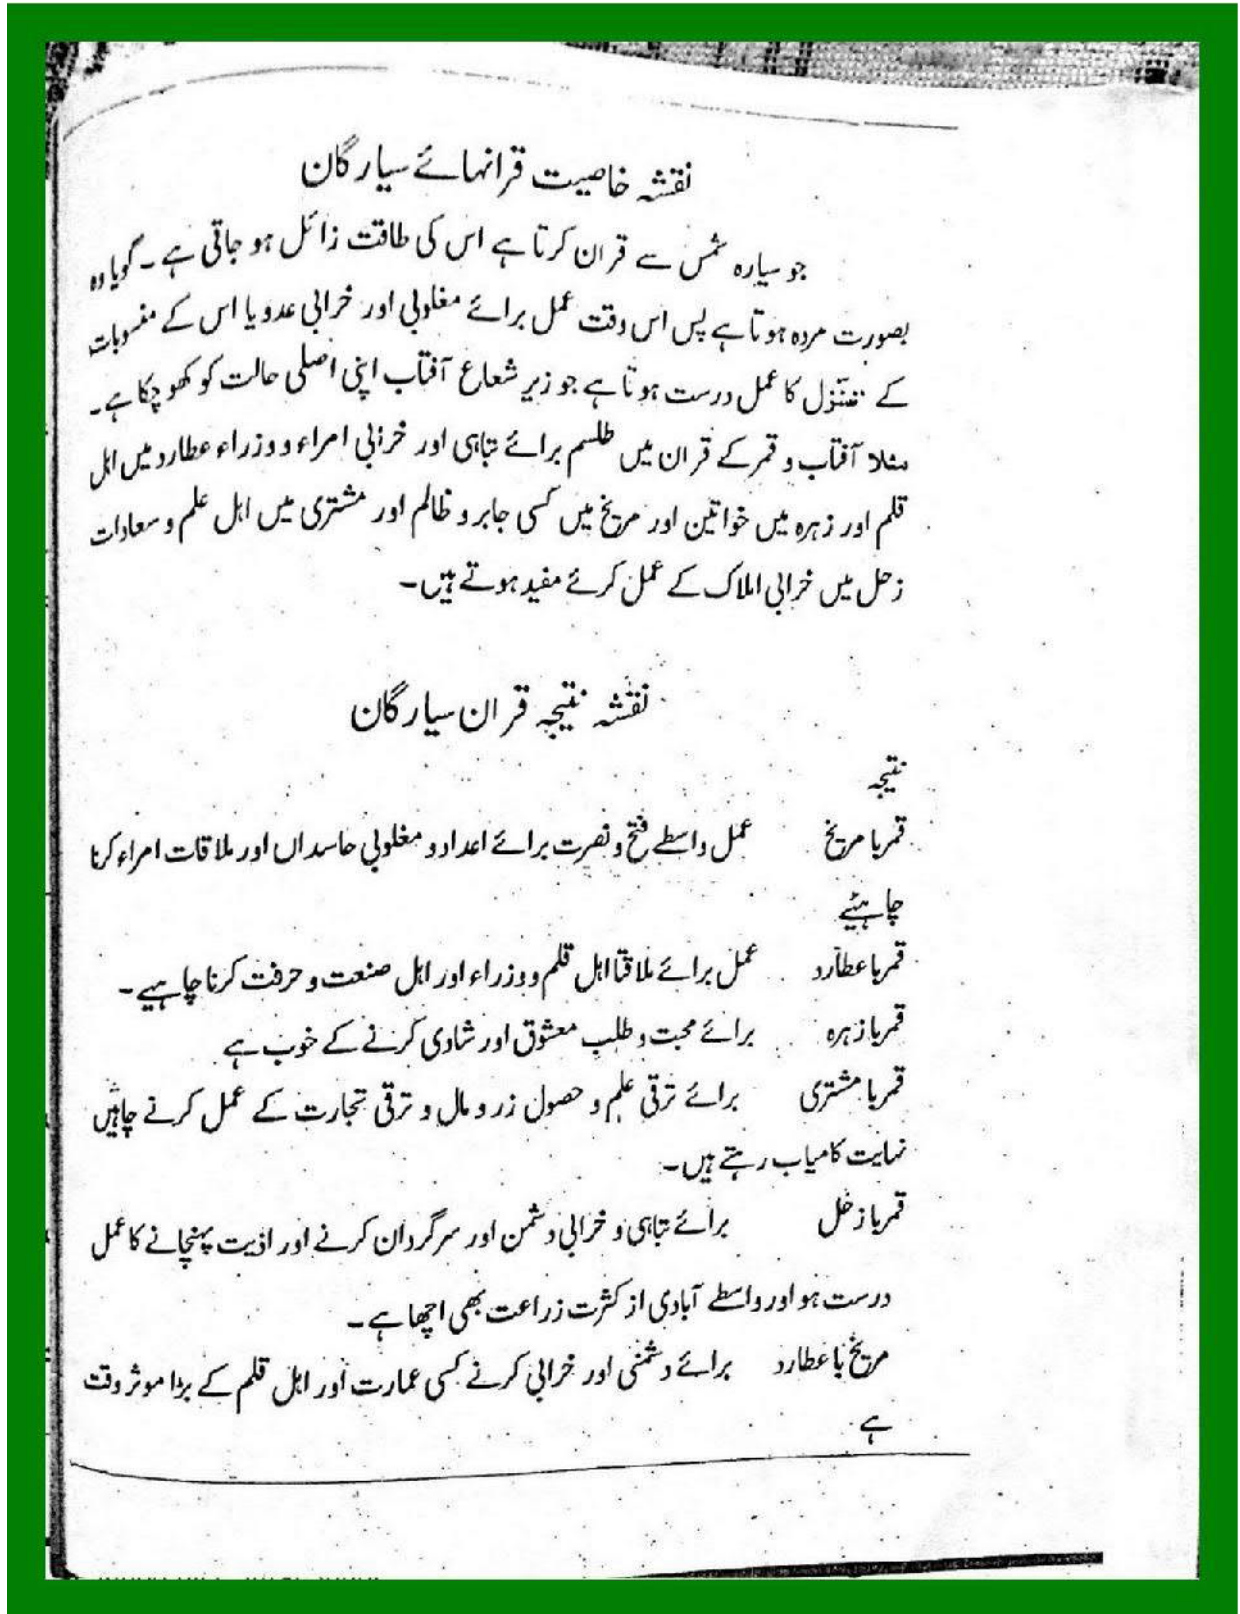 نقشہ خاصیت قرانہائے سیارگان
جو سیارہ شمس سے قران کرتا ہے اس کی طاقت زائل ہو جاتی ہے۔ گویا وہ
بصورت مردہ ہوتا ہے پس اس وقت عمل برائے مغلوبی اور خرابی عدو یا اس کے منسوبات
کے تنزل کا عمل درست ہوتا ہے جو زیر شعاع آفتاب اپنی اصلی حالت کو کھو چکا ہے۔
مثلا آفتاب و قمر کے قران میں طلسم برائے تباہی اور خرابی امراء و وزراء عطارد میں اہل
قلم اور زہرہ میں خواتین اور مریخ میں کسی جابر و ظالم اور مشتری میں اہل علم و سعادات
زحل میں خرابی املاک کے عمل کرئے مفید ہوتے ہیں۔
نقشہ نتیجہ قران سیارگان
نتیجہ
قمر با مریخ عمل واسطے فتح و نصرت برائے اعداد و مغلوبی حاسداں اور ملاقات امراء کرنا
چاہئیے
قمر با عطارد عمل برائے ملاقتا اہل قلم و وزراء اور اہل صنعت و حرفت کرنا چاہیے۔
قمر با زہرہ برائے محبت و طلب معشوق اور شادی کرنے کے خوب ہے
قمر با مشتری برائے ترقی علم و حصول زر و مال و ترقی تجارت کے عمل کرنے چاہیں
نہایت کامیاب رہتے ہیں۔
قمر با زحل برائے تباہی و خرابی دشمن اور سرگردان کرنے اور اذیت پہنچانے کا عمل
درست ہو اور واسطے آبادی از کثرت زراعت بھی اچھا ہے۔
مریخ با عطارد برائے دشمنی اور خرابی کرنے کسی عمارت اور اہل قلم کے بڑا موثر وقت
ہے